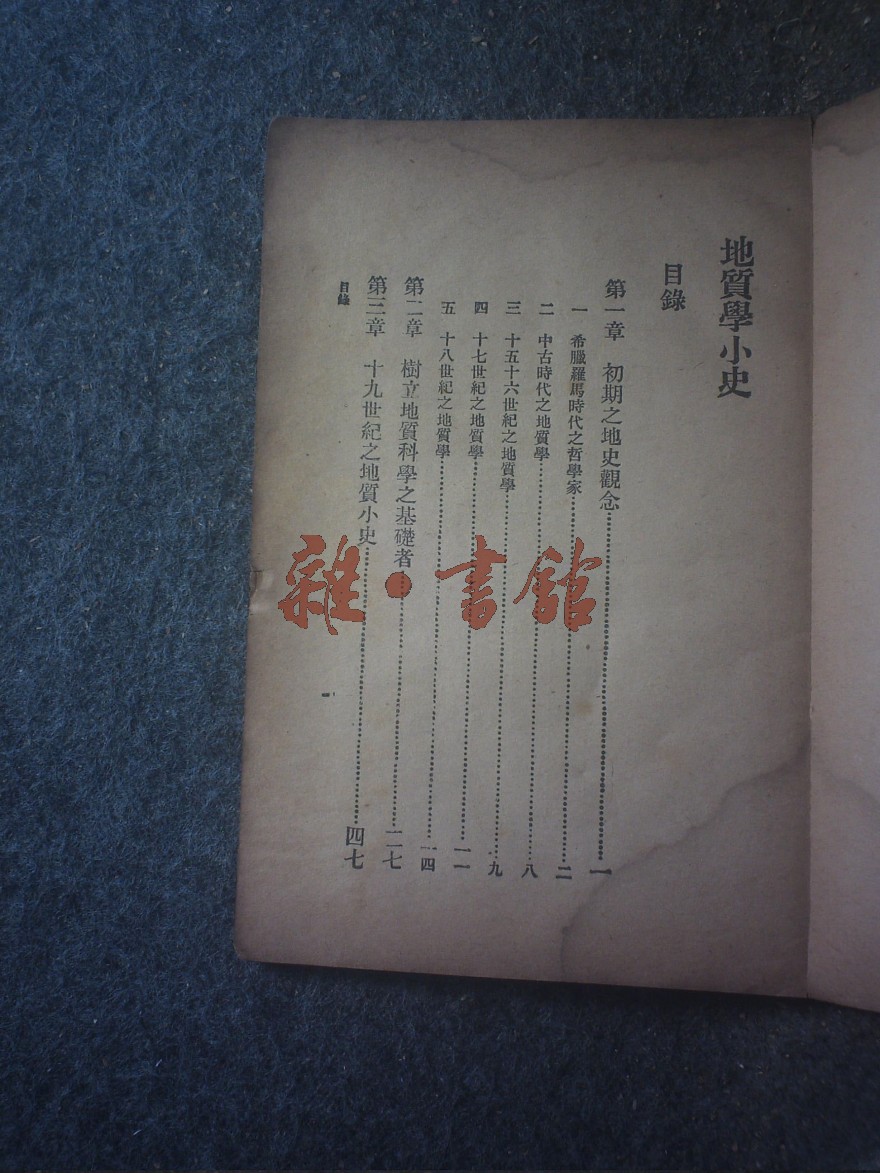 地質學小史
目錄
第一章 初期之地史觀念……一
一 希臘羅馬時代之哲學家……二
二 中古時代之地質學……八
三 十五十六世紀之地質學……九
四 十七世紀之地質學……一一
五 十八世紀之地質學……一四
第二章 樹立地質科學之基礎者……二七
第三章 十九世紀之地質小史……四七
目錄
一
雜·書館